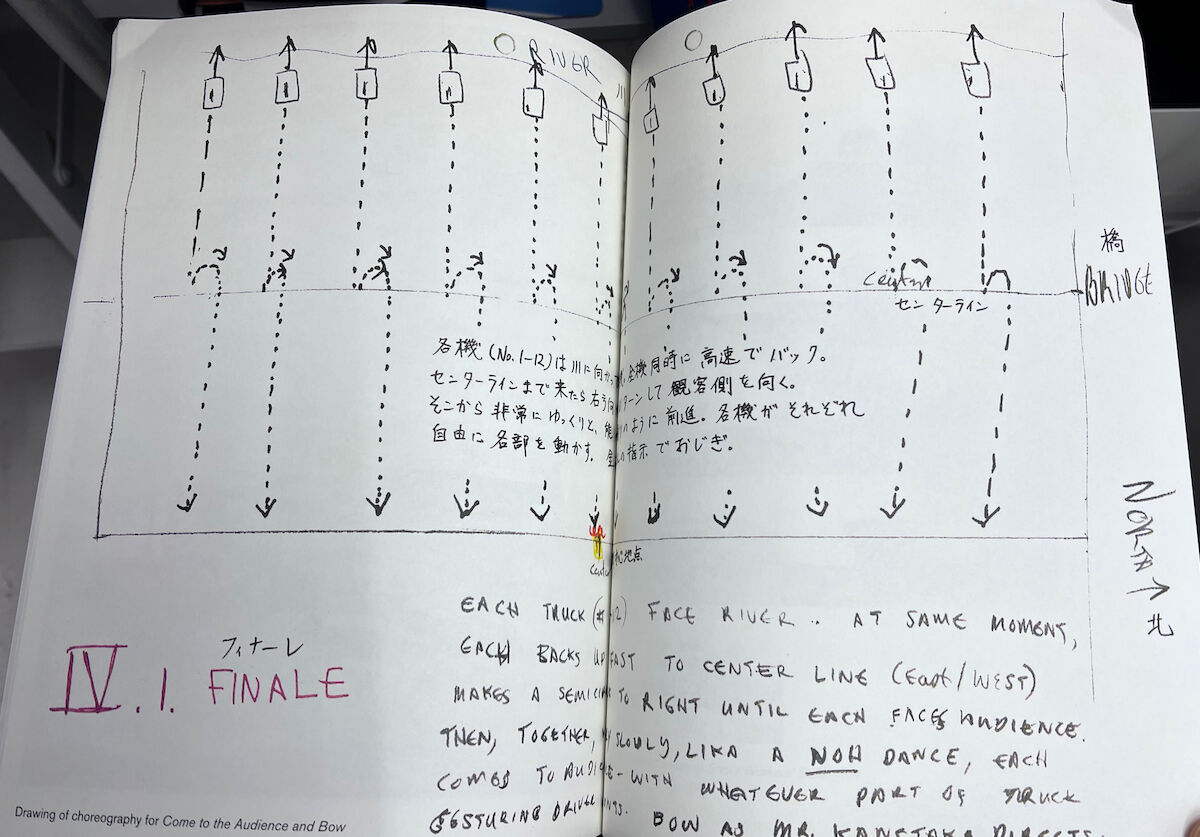 RIVER
川
橋
BRIDGE
センターライン
各機 (No.1-12)は川に向かっ 全機同時に高速でバック。
センターラインまで来たら右う回 ターンして観客側を向く。
そこから非常にゆっくりと、能 のように前進。各機がそれぞれ
自由に各部を動かす。 の指示でおじぎ。
地点
NORTH ↑
北
EACH TRUCK (#1-12) FACE RIVER.. AT SAME MOMENT,
EACH BACKS UP FAST TO CENTER LINE (East/WEST)
MAKES A SEMICIR TO RIGHT UNTIL EACH FACES AUDIENCE.
THEN, TOGETHER, SLOWLY, LIKA A NOH DANCE, EACH
COMES TO AUDI E-WITH WHATEVER PART OF TRUCK
GESTURING DRIVER WANTS. BOW AS MR. KANETAKA DIRECTS.
フィナーレ
IV.1. FINALE
Drawing of choreography for Come to the Audience and Bow